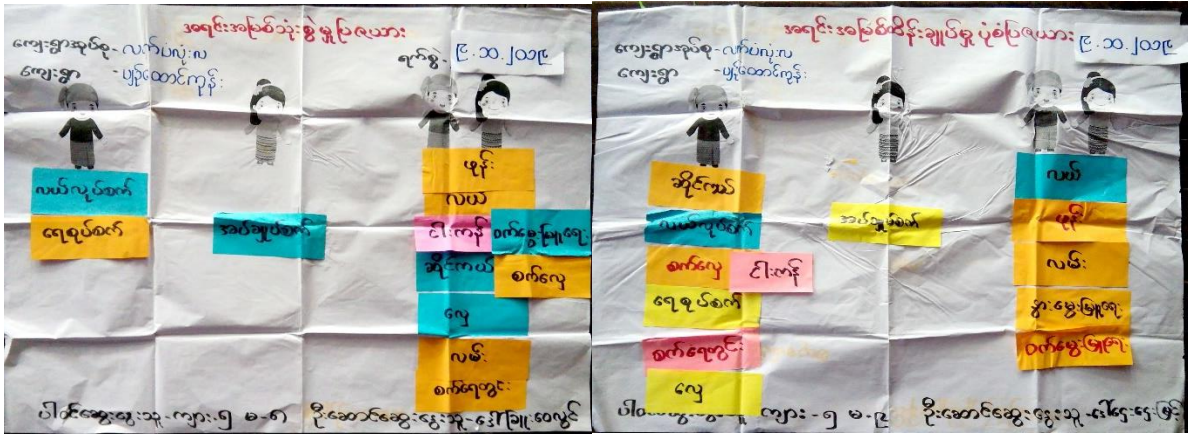 အရင်းအမြစ်သုံးစွဲမှုပြဇယား
ကျေးရွာအုပ်စု-လက်ပလုံးလ
ကျေးရွာ -ပျဉ်ထောင်ကုန်း
ရက်စွဲ- ၉.၁၀.၂၀၁၉
လယ်လုပ်စက်
ရေစုပ်စက်
အပ်ချုပ်စက်
ဖုန်း
လယ်
ငါးကန်
ဝက်မွေးမြူရေး
ဆိုင်ကယ်
စက်လှေ
လှေ
လမ်း
စက်ရေတွင်း
ပါဝင်ဆွေးနွေးသူ-ကျား-၅ မ-၈ ဦးဆောင်ဆွေးနွေးသူ-ဒေါ်ခြူးဝေလွင်
အရင်းအမြစ်ထိန်းချုပ်မှု ပုံစံပြဇယား
၉.၁၀.၂၀၁၉
ကျေးရွာအုပ်စု-လက်ပလုံးလ
ကျေးရွာ -ပျဉ်ထောင်ကုန်း
ဆိုင်ကယ်
လယ်လုပ်စက်
စက်လှေ
ငါးကန်
ရေစုပ်စက်
စက်ရေတွင်း
လှေ
အပ်ချုပ်စက်
လယ်
ဖုန်း
လမ်း
နွားမွေးမြူရေး
ဝက်မွေးမြူရေး
ကျား-၅ မ-၉ ဦးဆောင်ဆွေးနွေးသူ